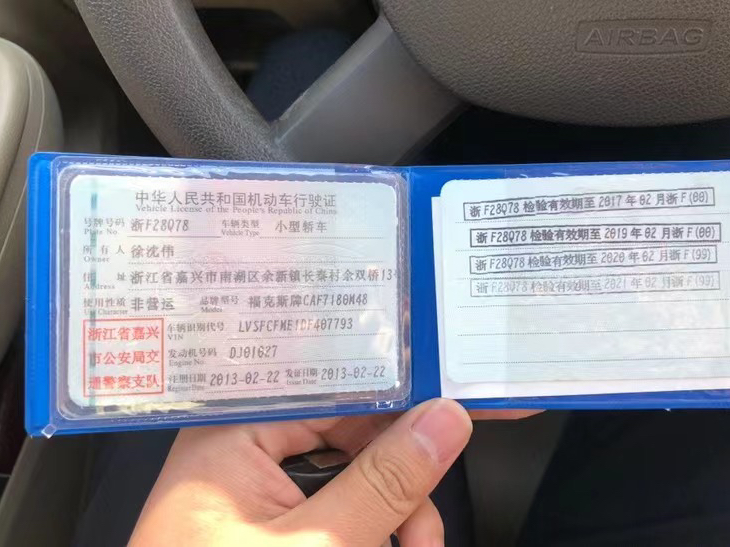 AIRBAG
中华人民共和国机动车行驶证
Vehicle License of the People's Republic of China
号牌号码 浙F28Q78 车辆类型 小型轿车
Plate No. Vehicle Type
所有人 徐沈伟
Owner
住址 浙江省嘉兴市南湖区余新镇长秦村余双桥13
Address
使用性质 非营运 品牌型号 福克斯牌CAF7180M48
Use Character Model
浙江省嘉兴
市公安局交
通警察支队
车辆识别代号 LVSFCFME1DF407793
VIN
发动机号码 DJ01627
Engine No.
注册日期 2013-02-22 发证日期 2013-02-22
Register Date Issue Date
浙F28Q78检验有效期至2017年02月浙F(00)
浙F28Q78检验有效期至2019年02月浙F(00)
浙F28Q78检验有效期至2020年02月浙F(99)
浙F28Q78检验有效期至2021年02月浙F(99)